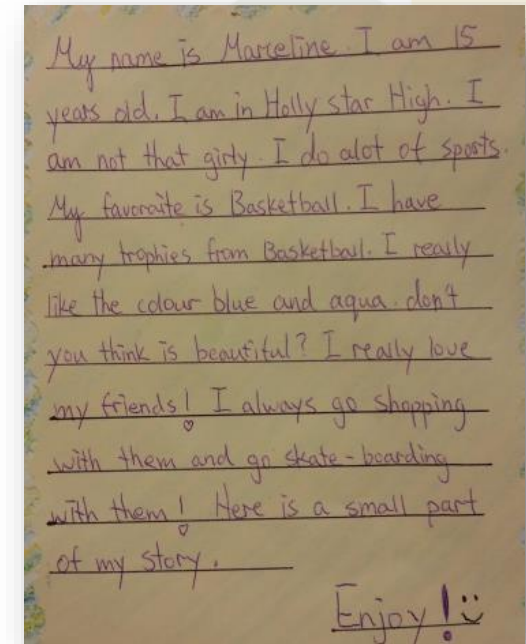 My name is Marceline. I am 15
years old. I am in Holly star High. I
am not that girly. I do alot of sports.
My favoraite is Basketball. I have
many trophies from Basketball. I really
like the colour blue and aqua. don't
you think is beautiful? I really love
my friends! I always go shopping
with them and go skate-boarding
with them! Here is a small part
of my story.
Enjoy!